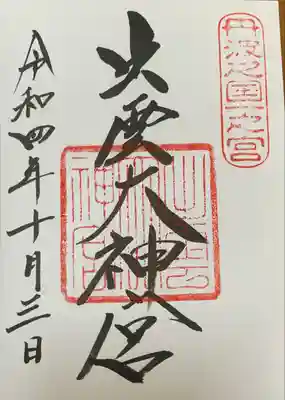 丹波之国一之宮
出雲大神宮
令和四年十月三日